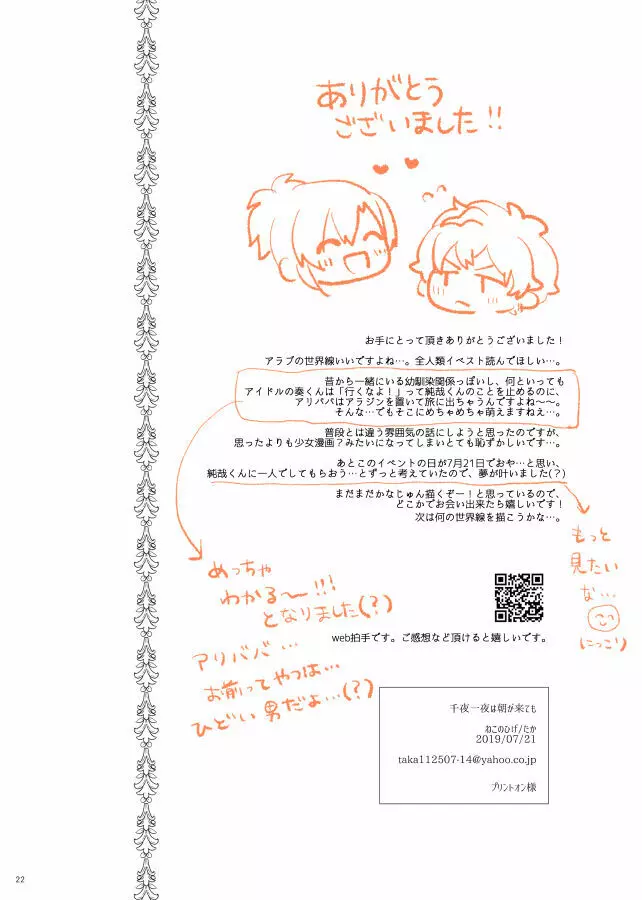 ありがとう
ございました!!
お手にとって頂きありがとうございました!
アラブの世界線いいですよね…。全人類イベスト読んでほしい…。
昔から一緒にいる幼馴染関係っぽいし、何といっても
アイドルの奏くんは「行くなよ!」って純哉くんのことを止めるのに、
アリババはアラジンを置いて旅に出ちゃうんですよね〜〜。
そんな…でもそこにめちゃめちゃ萌えますねえ…。
普段とは違う雰囲気の話にしようと思ったのですが、
思ったよりも少女漫画?みたいになってしまいとても恥ずかしいです…。
あとこのイベントの日が7月21日でおや…と思い、
純哉くんに一人でしてもらおう…とずっと考えていたので、夢が叶いました(?)
まだまだかなじゅん描くぞー!と思っているので、
どこかでお会い出来たら嬉しいです!
次は何の世界線を描こうかな…。
もっと
見たい
な…
(にっこり)
めっちゃ
わかる〜!!!
となりました(?)
アリババ…
お前ってやつは…
ひどい男だよ…(?)
web拍手です。ご感想など頂けると嬉しいです。
千夜一夜は朝が来ても
ねこのひげ/たか
2019/07/21
taka112507-14@yahoo.co.jp
プリントオン様
22